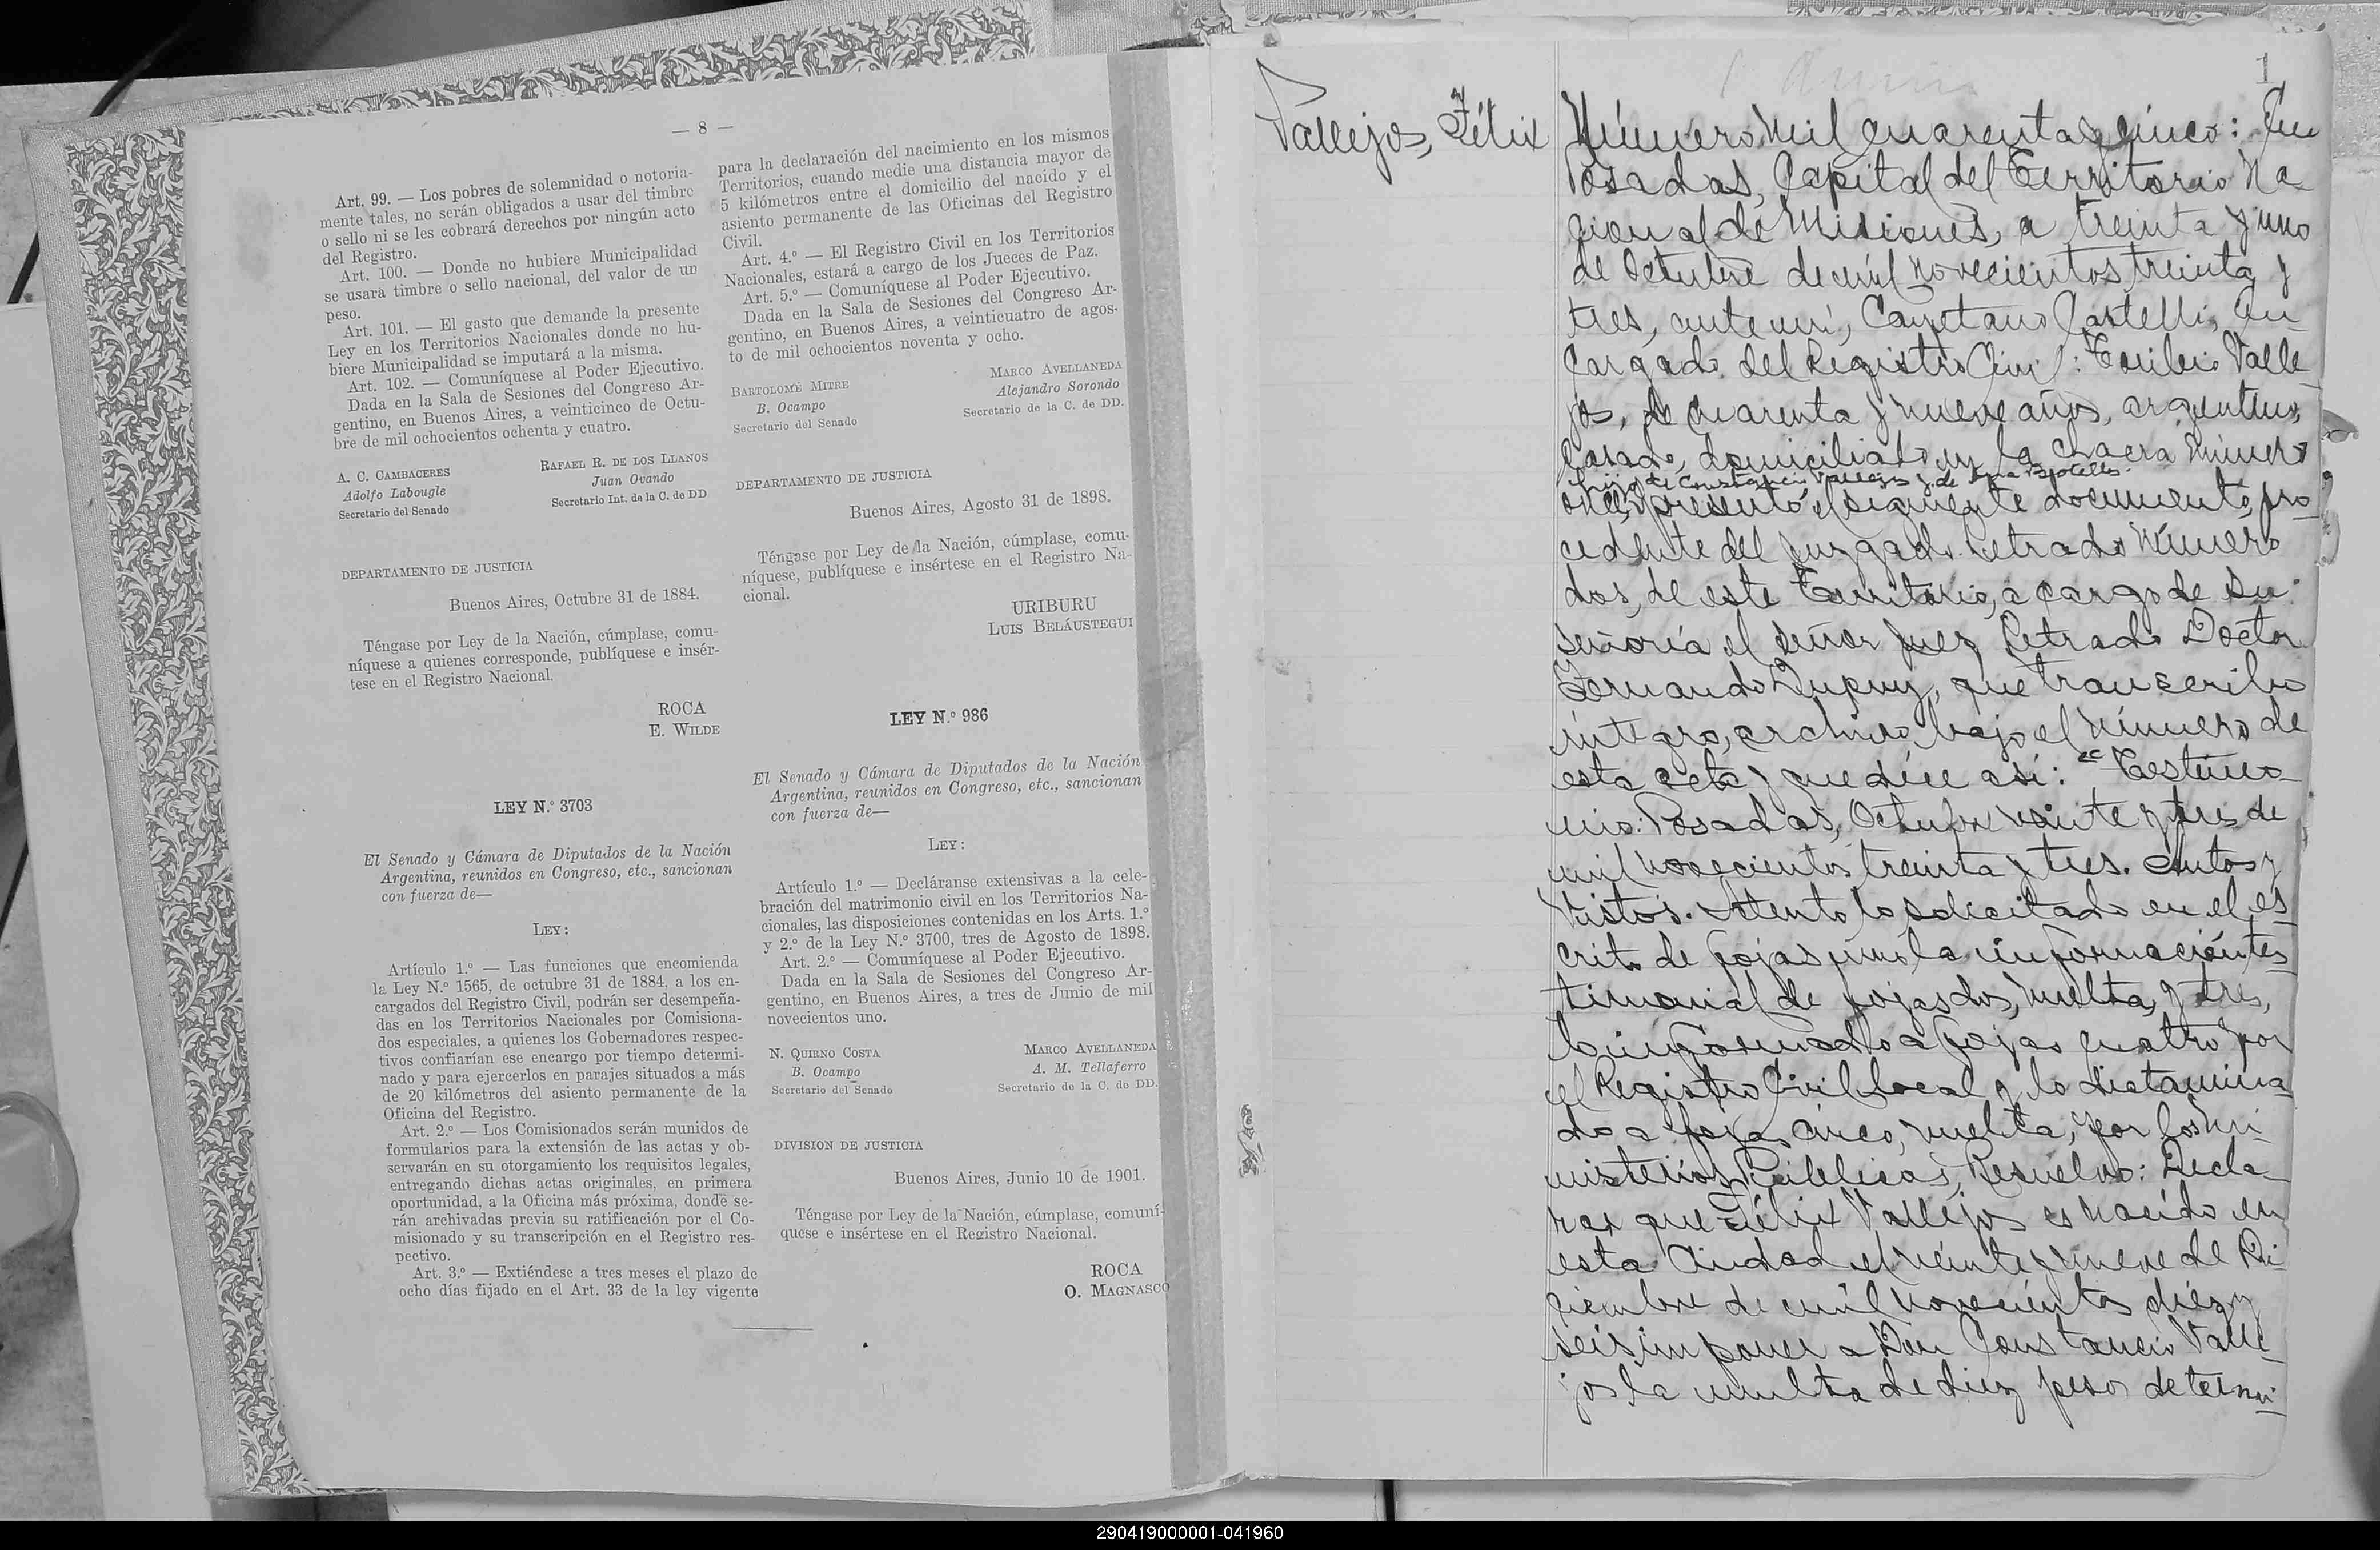 — 8 —
Art. 99. — Los pobres de solemnidad o notoria-
mente tales, no serán obligados a usar del timbre
o sello ni se les cobrará derechos por ningún acto
del Registro.
Art. 100. — Donde no hubiere Municipalidad
se usará timbre o sello nacional, del valor de un
peso.
Art. 101. — El gasto que demande la presente
Ley en los Territorios Nacionales donde no hu-
biere Municipalidad se imputará a la misma.
Art. 102. — Comuníquese al Poder Ejecutivo.
Dada en la Sala de Sesiones del Congreso Ar-
gentino, en Buenos Aires, a veinticinco de Octu-
bre de mil ochocientos ochenta y cuatro.
A. C. CAMBACERES
Adolfo Labougle
Secretario del Senado
RAFAEL R. DE LOS LLANOS
Juan Ovando
Secretario Int. de la C. de DD
DEPARTAMENTO DE JUSTICIA
Buenos Aires, Octubre 31 de 1884.
Téngase por Ley de la Nación, cúmplase, comu-
níquese a quienes corresponde, publíquese e insér-
tese en el Registro Nacional.
ROCA
E. WILDE
LEY N.º 3703
El Senado y Cámara de Diputados de la Nación
Argentina, reunidos en Congreso, etc., sancionan
con fuerza de—
LEY:
Artículo 1.º — Las funciones que encomienda
la Ley N.º 1565, de octubre 31 de 1884, a los en-
cargados del Registro Civil, podrán ser desempeña-
das en los Territorios Nacionales por Comisiona-
dos especiales, a quienes los Gobernadores respec-
tivos confiarían ese encargo por tiempo determi-
nado y para ejercerlos en parajes situados a más
de 20 kilómetros del asiento permanente de la
Oficina del Registro.
Art. 2.º — Los Comisionados serán munidos de
formularios para la extensión de las actas y ob-
servarán en su otorgamiento los requisitos legales,
entregando dichas actas originales, en primera
oportunidad, a la Oficina más próxima, donde se-
rán archivadas previa su ratificación por el Co-
misionado y su transcripción en el Registro res-
pectivo.
Art. 3.º — Extiéndese a tres meses el plazo de
ocho días fijado en el Art. 33 de la ley vigente
para la declaración del nacimiento en los mismos
Territorios, cuando medie una distancia mayor de
5 kilómetros entre el domicilio del nacido y el
asiento permanente de las Oficinas del Registro
Civil.
Art. 4.º — El Registro Civil en los Territorios
Nacionales, estará a cargo de los Jueces de Paz.
Art. 5.º — Comuníquese al Poder Ejecutivo.
Dada en la Sala de Sesiones del Congreso Ar-
gentino, en Buenos Aires, a veinticuatro de agos-
to de mil ochocientos noventa y ocho.
BARTOLOMÉ MITRE
B. Ocampo
Secretario del Senado
MARCO AVELLANEDA
Alejandro Sorondo
Secretario de la C. de DD.
DEPARTAMENTO DE JUSTICIA
Buenos Aires, Agosto 31 de 1898.
Téngase por Ley de la Nación, cúmplase, comu-
níquese, publíquese e insértese en el Registro Na-
cional.
URIBURU
LUIS BELÁUSTEGUI
LEY N.º 986
El Senado y Cámara de Diputados de la Nación
Argentina, reunidos en Congreso, etc., sancionan
con fuerza de—
LEY:
Artículo 1.º — Decláranse extensivas a la cele-
bración del matrimonio civil en los Territorios Na-
cionales, las disposiciones contenidas en los Arts. 1.º
y 2.º de la Ley N.º 3700, tres de Agosto de 1898.
Art. 2.º — Comuníquese al Poder Ejecutivo.
Dada en la Sala de Sesiones del Congreso Ar-
gentino, en Buenos Aires, a tres de Junio de mil
novecientos uno.
N. QUIRNO COSTA
B. Ocampo
Secretario del Senado
MARCO AVELLANEDA
A. M. Tellaferro
Secretario de la C. de DD.
DIVISION DE JUSTICIA
Buenos Aires, Junio 10 de 1901.
Téngase por Ley de la Nación, cúmplase, comuní-
quese e insértese en el Registro Nacional.
ROCA
O. MAGNASCO
1
Vallejos, Félix
Número mil cuarenta y cinco: En
Posadas, Capital del Territorio Na
cional de Misiones, a treinta y uno
de Octubre de mil novecientos treinta y
tres, ante mí, Cayetano Castelli, En
cargado del Registro Civil: Toribio Valle
jos, de cuarenta y nueve años, argentino,
casado, domiciliado en la chacra número
hijo de Constancio Vallejos y de
once, presentó el siguiente documento, pro
cedente del Juzgado Letrado Número
dos, de este Territorio, a cargo de Su
Señoría el Señor Juez Letrado Doctor
Fernando Dupuy, que transcribo
íntegro, archivo bajo el número de
esta acta y que dice así: "Testimo
nio: Posadas, Octubre veinte y tres de
mil novecientos treinta y tres. Autos y
Vistos. Atento lo solicitado en el es
crito de fojas uno la información tes
timonial de fojas dos, vuelta, y tres,
lo informado a fojas cuatro por
el Registro Civil local y lo dictamina
do a fojas cinco, vuelta, por los Mi
nisterios Públicos, Resuelvo: Decla
rar que Félix Vallejos es nacido en
esta Ciudad el veinte y nueve de Di
ciembre de mil novecientos diez y
seis, imponer a Don Constancio Valle
jos la multa de diez pesos determi
290419000001-041960